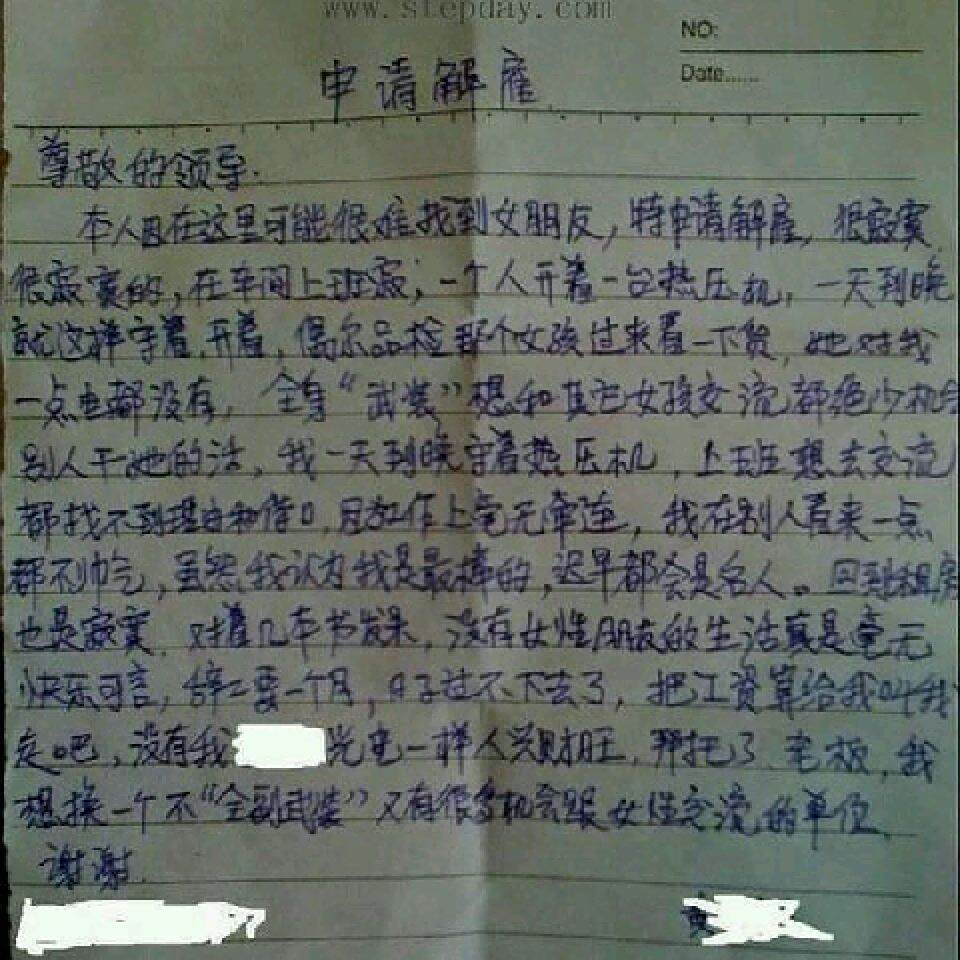 www.stepday.com
NO:
Date......
申请解雇
尊敬的领导.
本人因在这里可能很难找到女朋友，特申请解雇，很寂寞
很寂寞的，在车间上班寂，一个人开着一台热压机，一天到晚
就这样守着，开着，偶尔品检那个女孩过来看一下货，她对我
一点电都没有，全身“武装”想和其它女孩交流都绝少机会
别人干她的活，我一天到晚守着热压机，上班想去交流
都找不到理由和借口，因为工作上毫无牵连，我在别人看来一点
都不帅气，虽然我认为我是最棒的，迟早都会是名人。回到租房
也是寂寞，对着几本书发呆，没有女性朋友的生活真是毫无
快乐可言，辞工要一个月，日子过不下去了，把工资算给我叫我
走吧，没有我 光电一样人兴财旺，那把了，老板，我
想换一个不“全副武装”又有很多机会跟女性交流的单位
谢谢.
黄